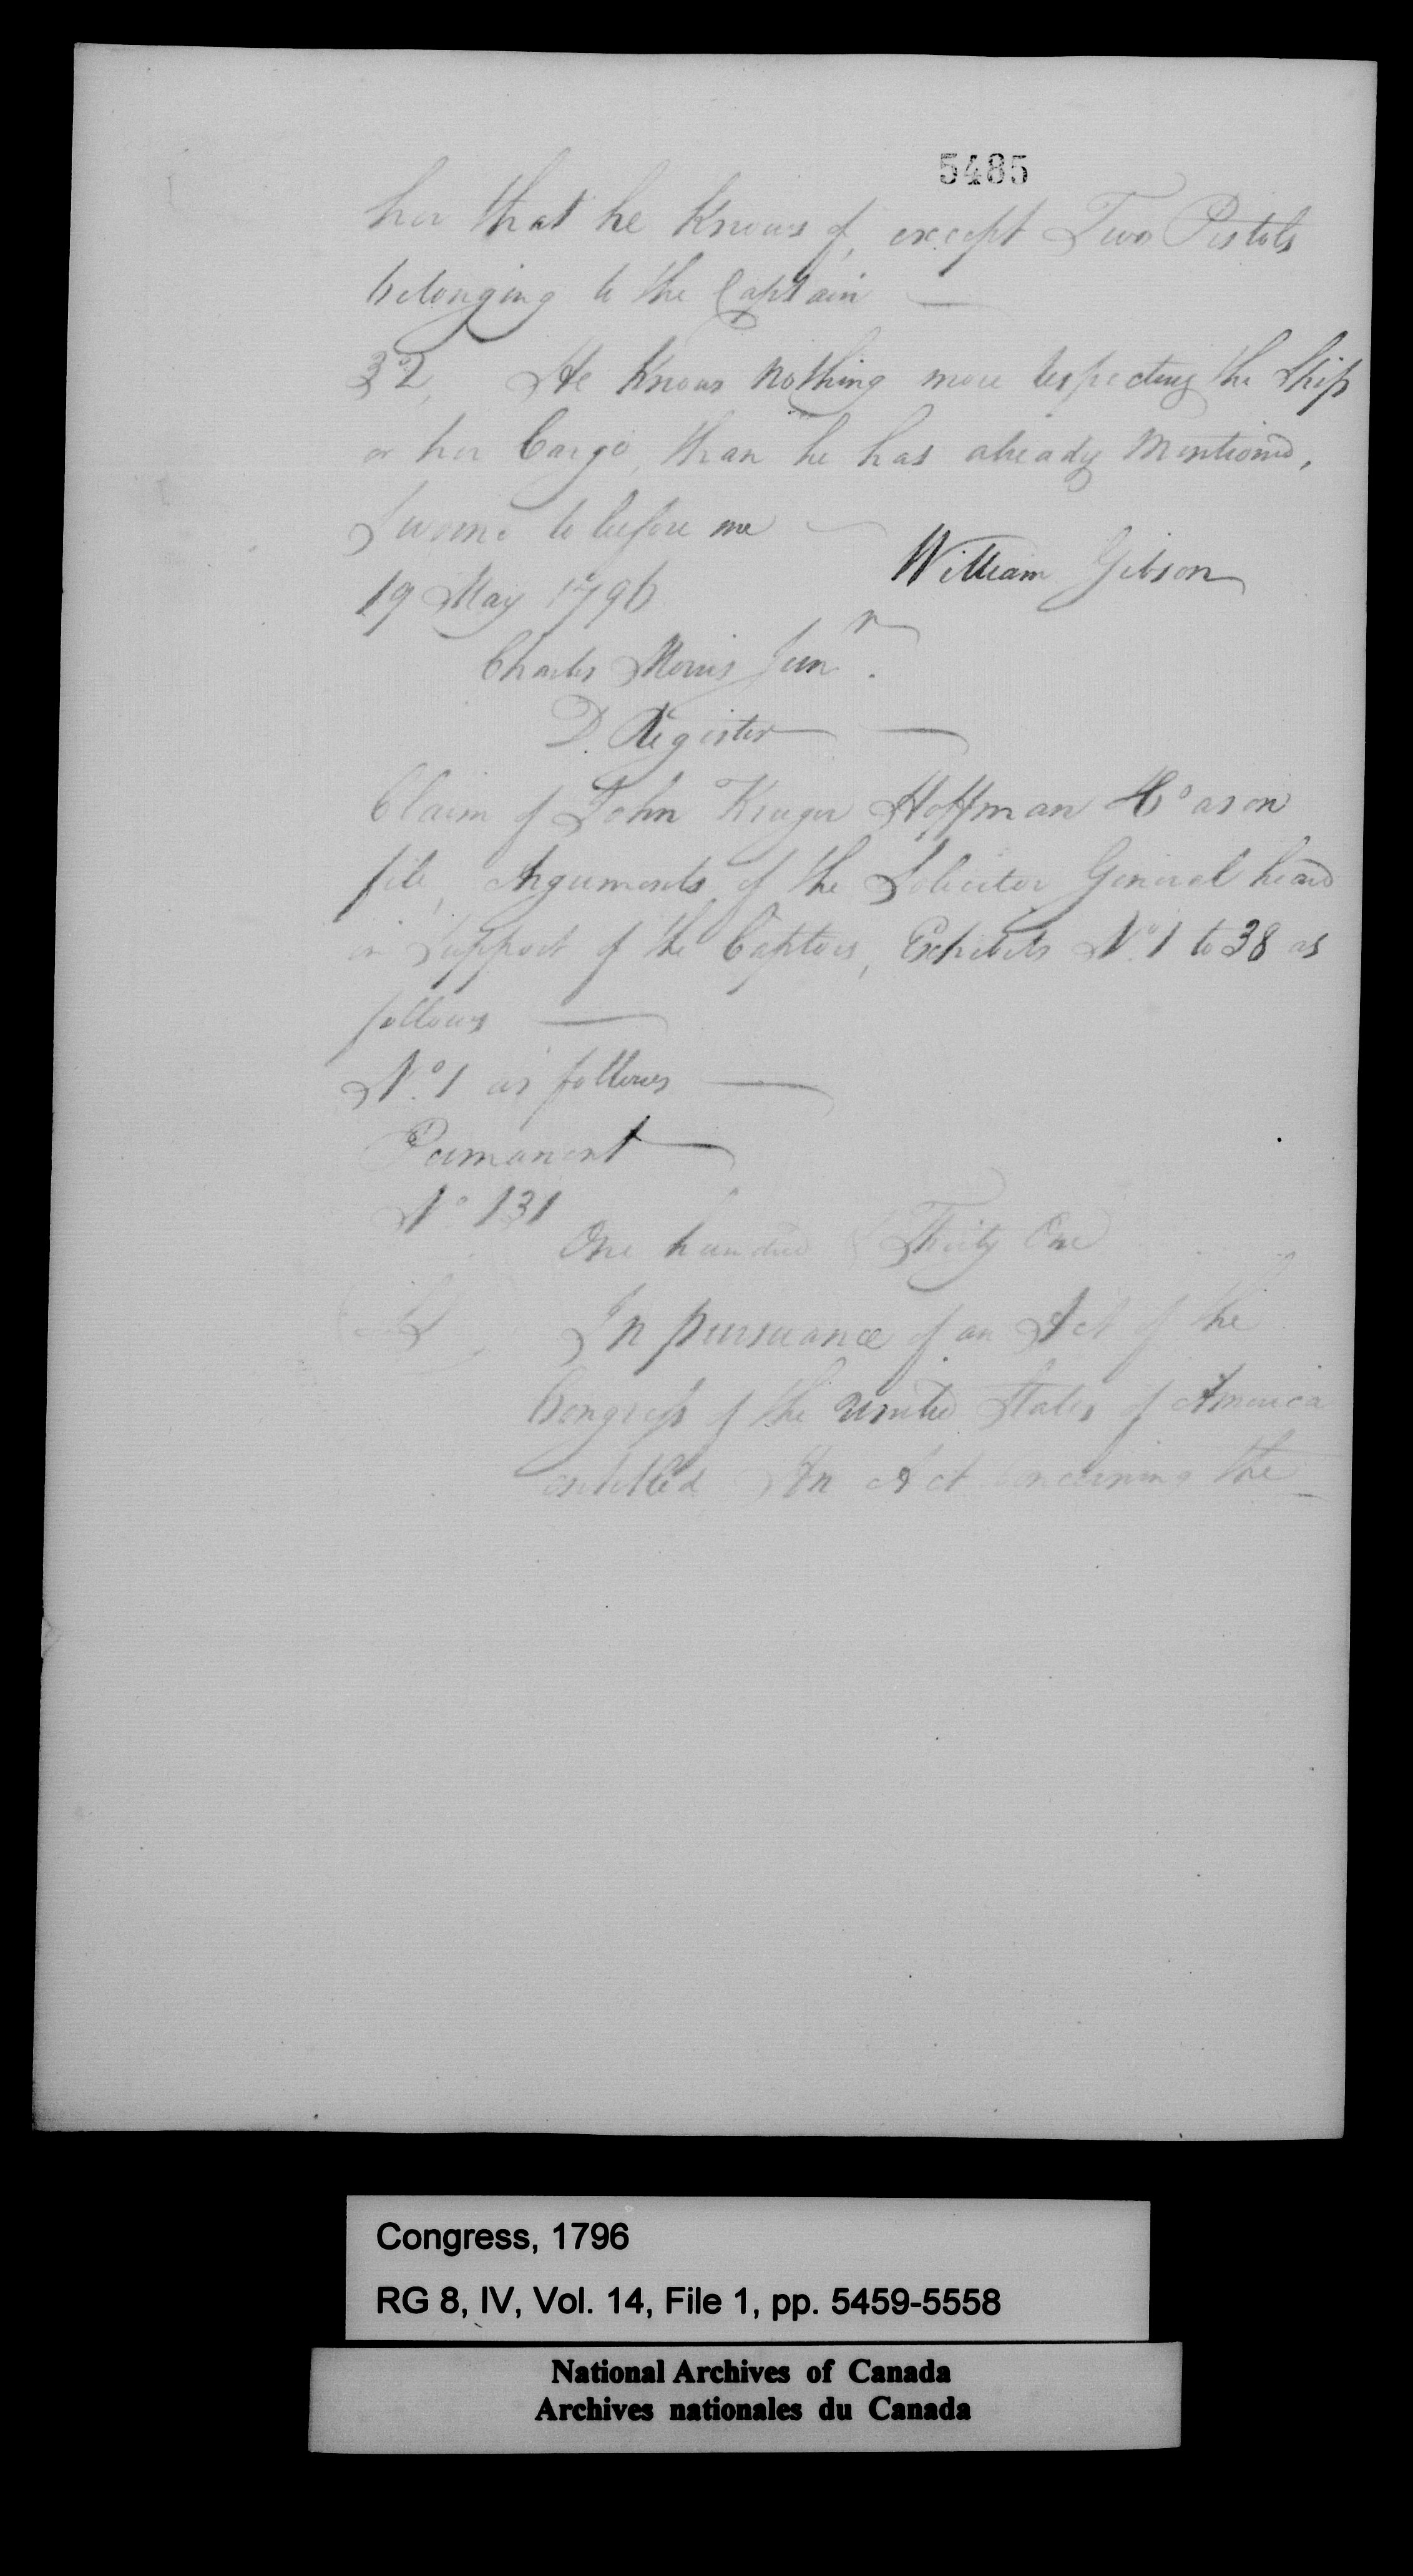 5485
her that he Knows of, except Two Pistols
belonging to the Captain —
32, He Knows Nothing more respecting the Ship
or her Cargo, than he has already Mentioned,
Sworne to before me —
William Gibson
19 May 1796
Charles Morris Junr.
D. Register —
Claim of John Kruger Hoffman &Co as on
file, Arguments of the Solicitor General heard
in Support of the Captors, Exhibits No. 1 to 38 as
follows —
No. 1 as follows —
Permanent —
No 131
One hundred & Thirty One
In pursuance of an Act of the
Congress of the United States of America
entitled An Act concerning the
Congress, 1796
RG 8, IV, Vol. 14, File 1, pp. 5459-5558
National Archives of Canada
Archives nationales du Canada